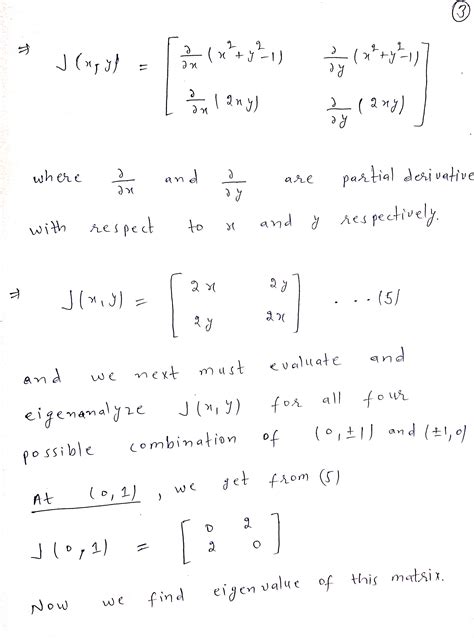 ③
⇒ J(x, y) = [ ∂/∂x (x²+y²-1)   ∂/∂y (x²+y²-1)
∂/∂x (2xy)   ∂/∂y (2xy) ]
where ∂/∂x and ∂/∂y are partial derivative
with respect to x and y respectively.
⇒ J(x, y) = [ 2x   2y
2y   2x ] ...(5)
and we next must evaluate and
eigenanalyze J(x, y) for all four
possible combination of (0, ±1) and (±1, 0)
At (0, 1), we get from (5)
J(0, 1) = [ 0   2
2   0 ]
Now we find eigen value of this matrix.